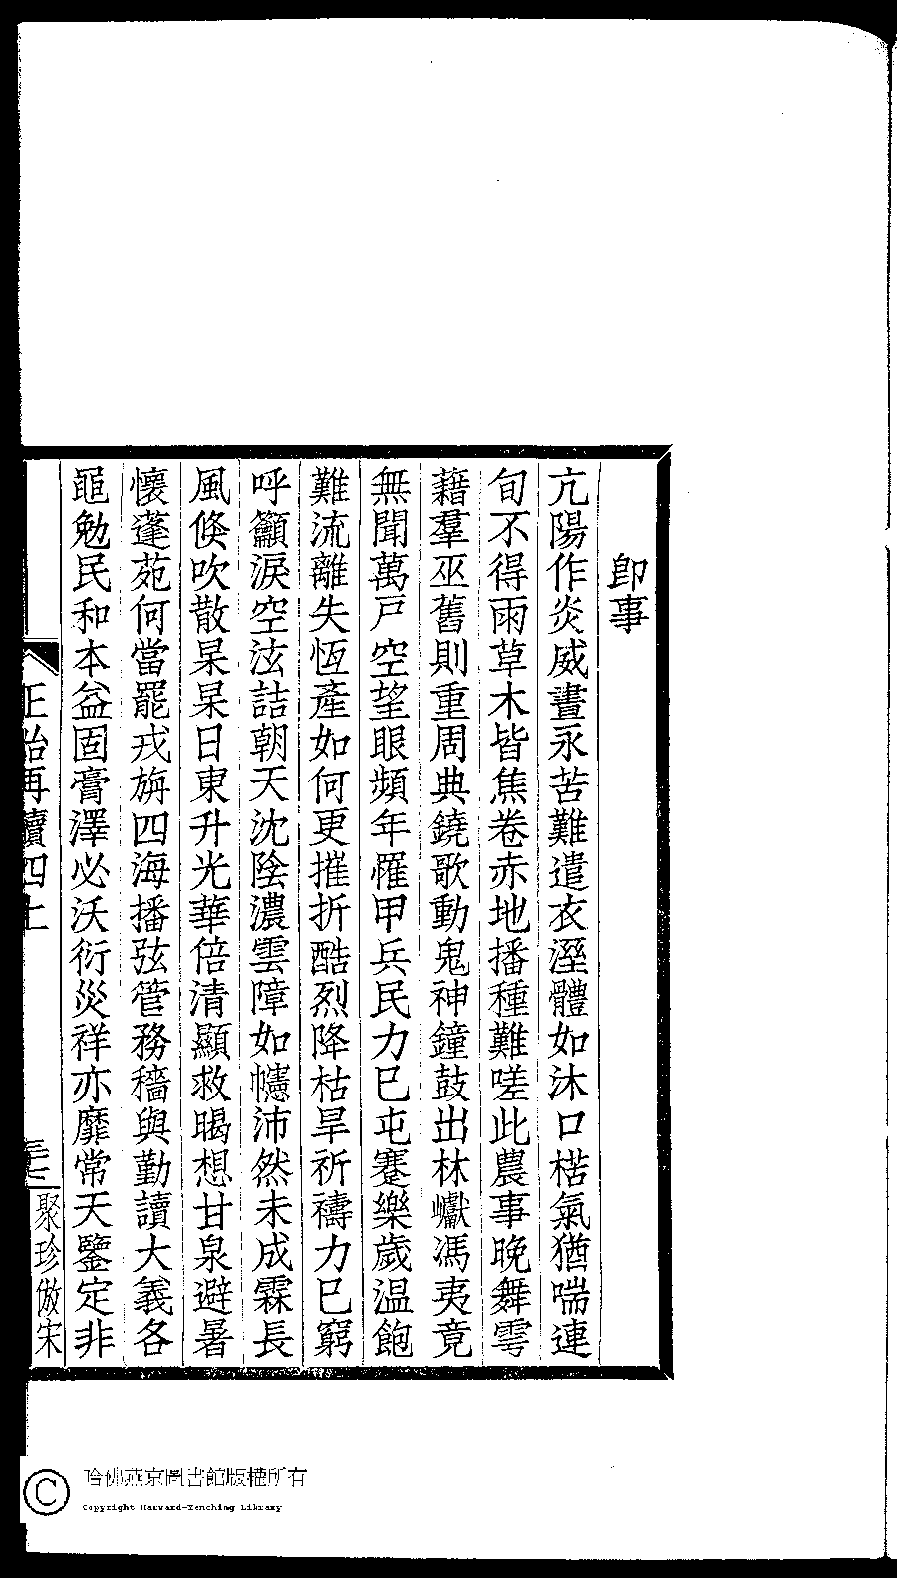 即事
亢陽作炎威晝永苦難遣衣溼體如沐口楛氣猶喘連
旬不得雨草木皆焦卷赤地播種難嗟此農事晚舞雩
藉羣巫舊則重周典鐃歌動鬼神鐘鼓出林巘馮夷竟
無聞萬戸空望眼頻年罹甲兵民力已屯蹇樂歲溫飽
難流離失恆產如何更摧折酷烈降枯旱祈禱力已窮
呼籲淚空泫詰朝天沈陰濃雲障如幰沛然未成霖長
風倏吹散杲杲日東升光華倍清顯救暍想甘泉避暑
懷蓬苑何當罷戎旃四海播弦管務穡與勤讀大義各
黽勉民和本益固膏澤必沃衍災祥亦靡常天鑒定非
正始再續四上
聚珍倣宋
哈佛燕京圖書館版權所有
Copyright Harvard-Yenching Library